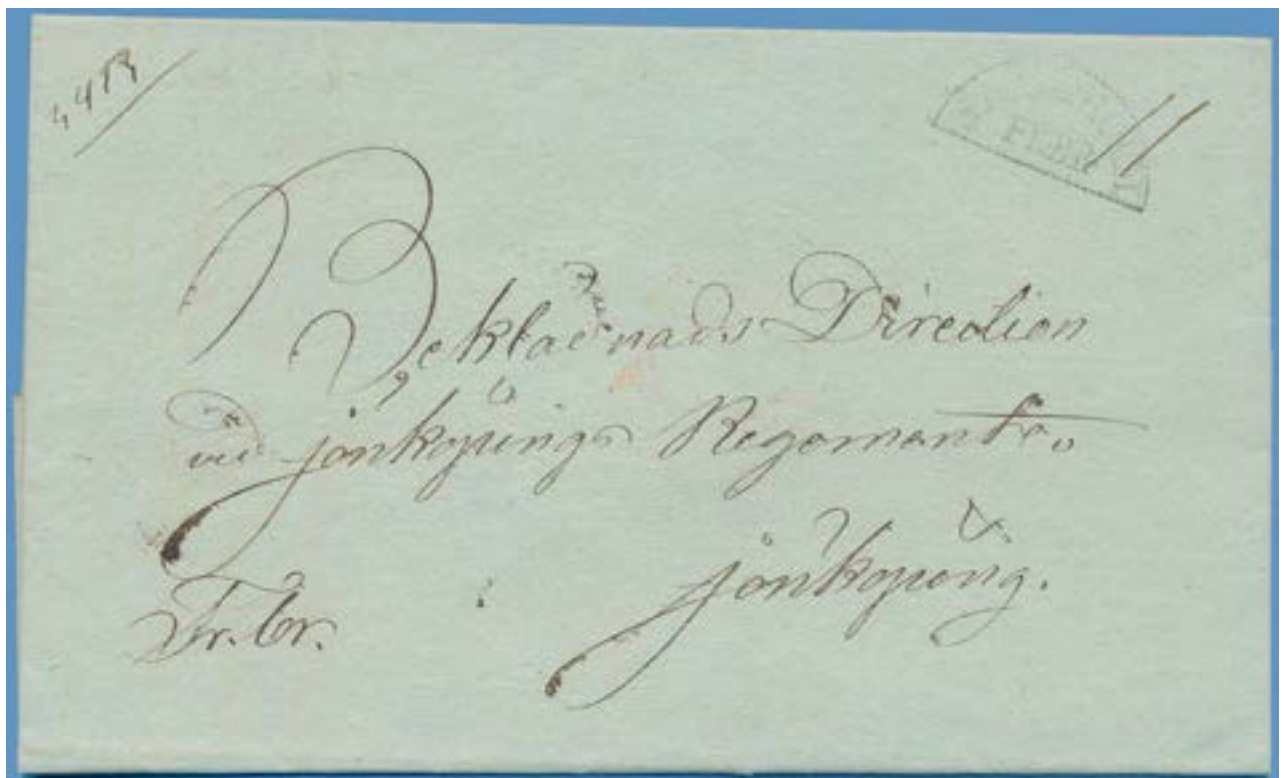 FEBR
Beklädnads Direction
vid Jönköpings Regemente.
Jönköping.
Fr. Br.